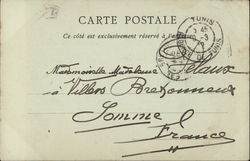 CARTE POSTALE
Ce côté est exclusivement réservé à l'adresse
TUNIS
Mademoiselle Madeleine Delaux
à Villers Bretonneux
Somme
France